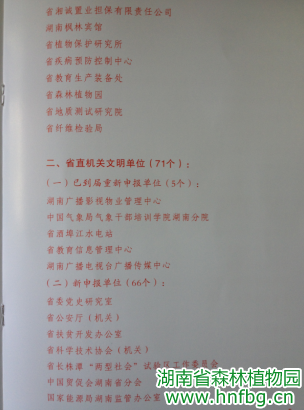 省湘诚置业担保有限责任公司
湖南枫林宾馆
省植物保护研究所
省疾病预防控制中心
省教育生产装备处
省森林植物园
省地质测试研究院
省纤维检验局
二、省直机关文明单位（71个）：
（一）已到届重新申报单位（5个）：
湖南广播影视物业管理中心
中国气象局气象干部培训学院湖南分院
省酒埠江水电站
省教育信息管理中心
湖南广播电视台广播传媒中心
（二）新申报单位（66个）：
省委党史研究室
省公安厅（机关）
省扶贫开发办公室
省科学技术协会（机关）
省长株潭“两型社会”试验区工作委员会
中国贸促会湖南省分会
国家能源局湖南监管办公室
湖南省森林植物园
www.hnfbg.cn